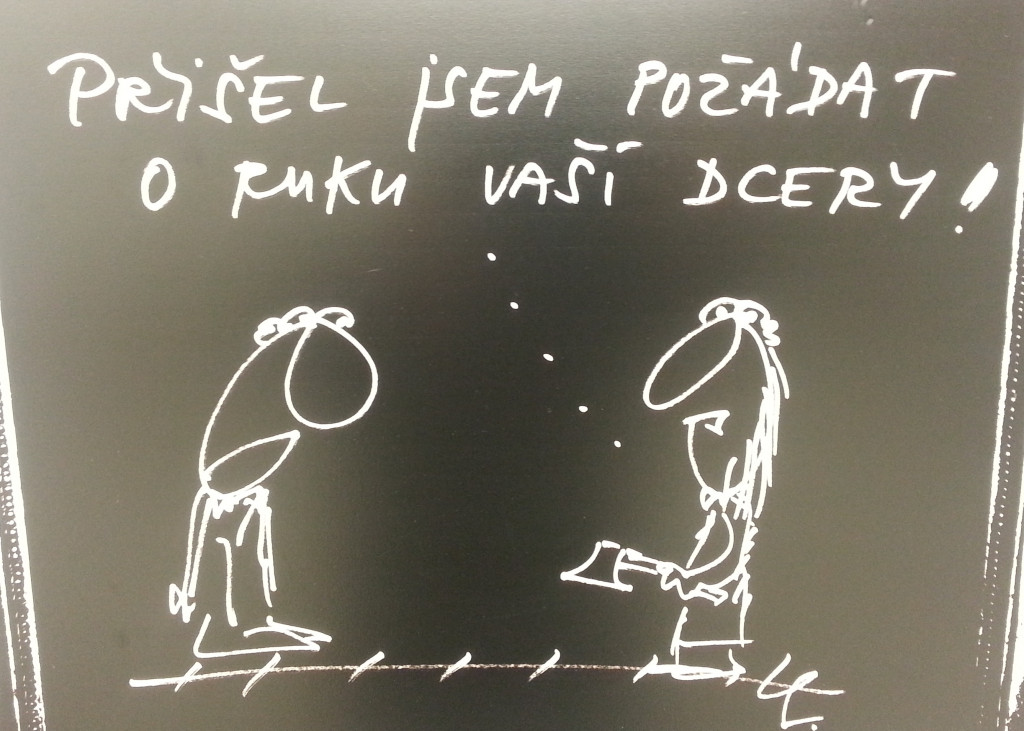 PŘIŠEL JSEM POŽÁDAT
O RUKU VAŠÍ DCERY!